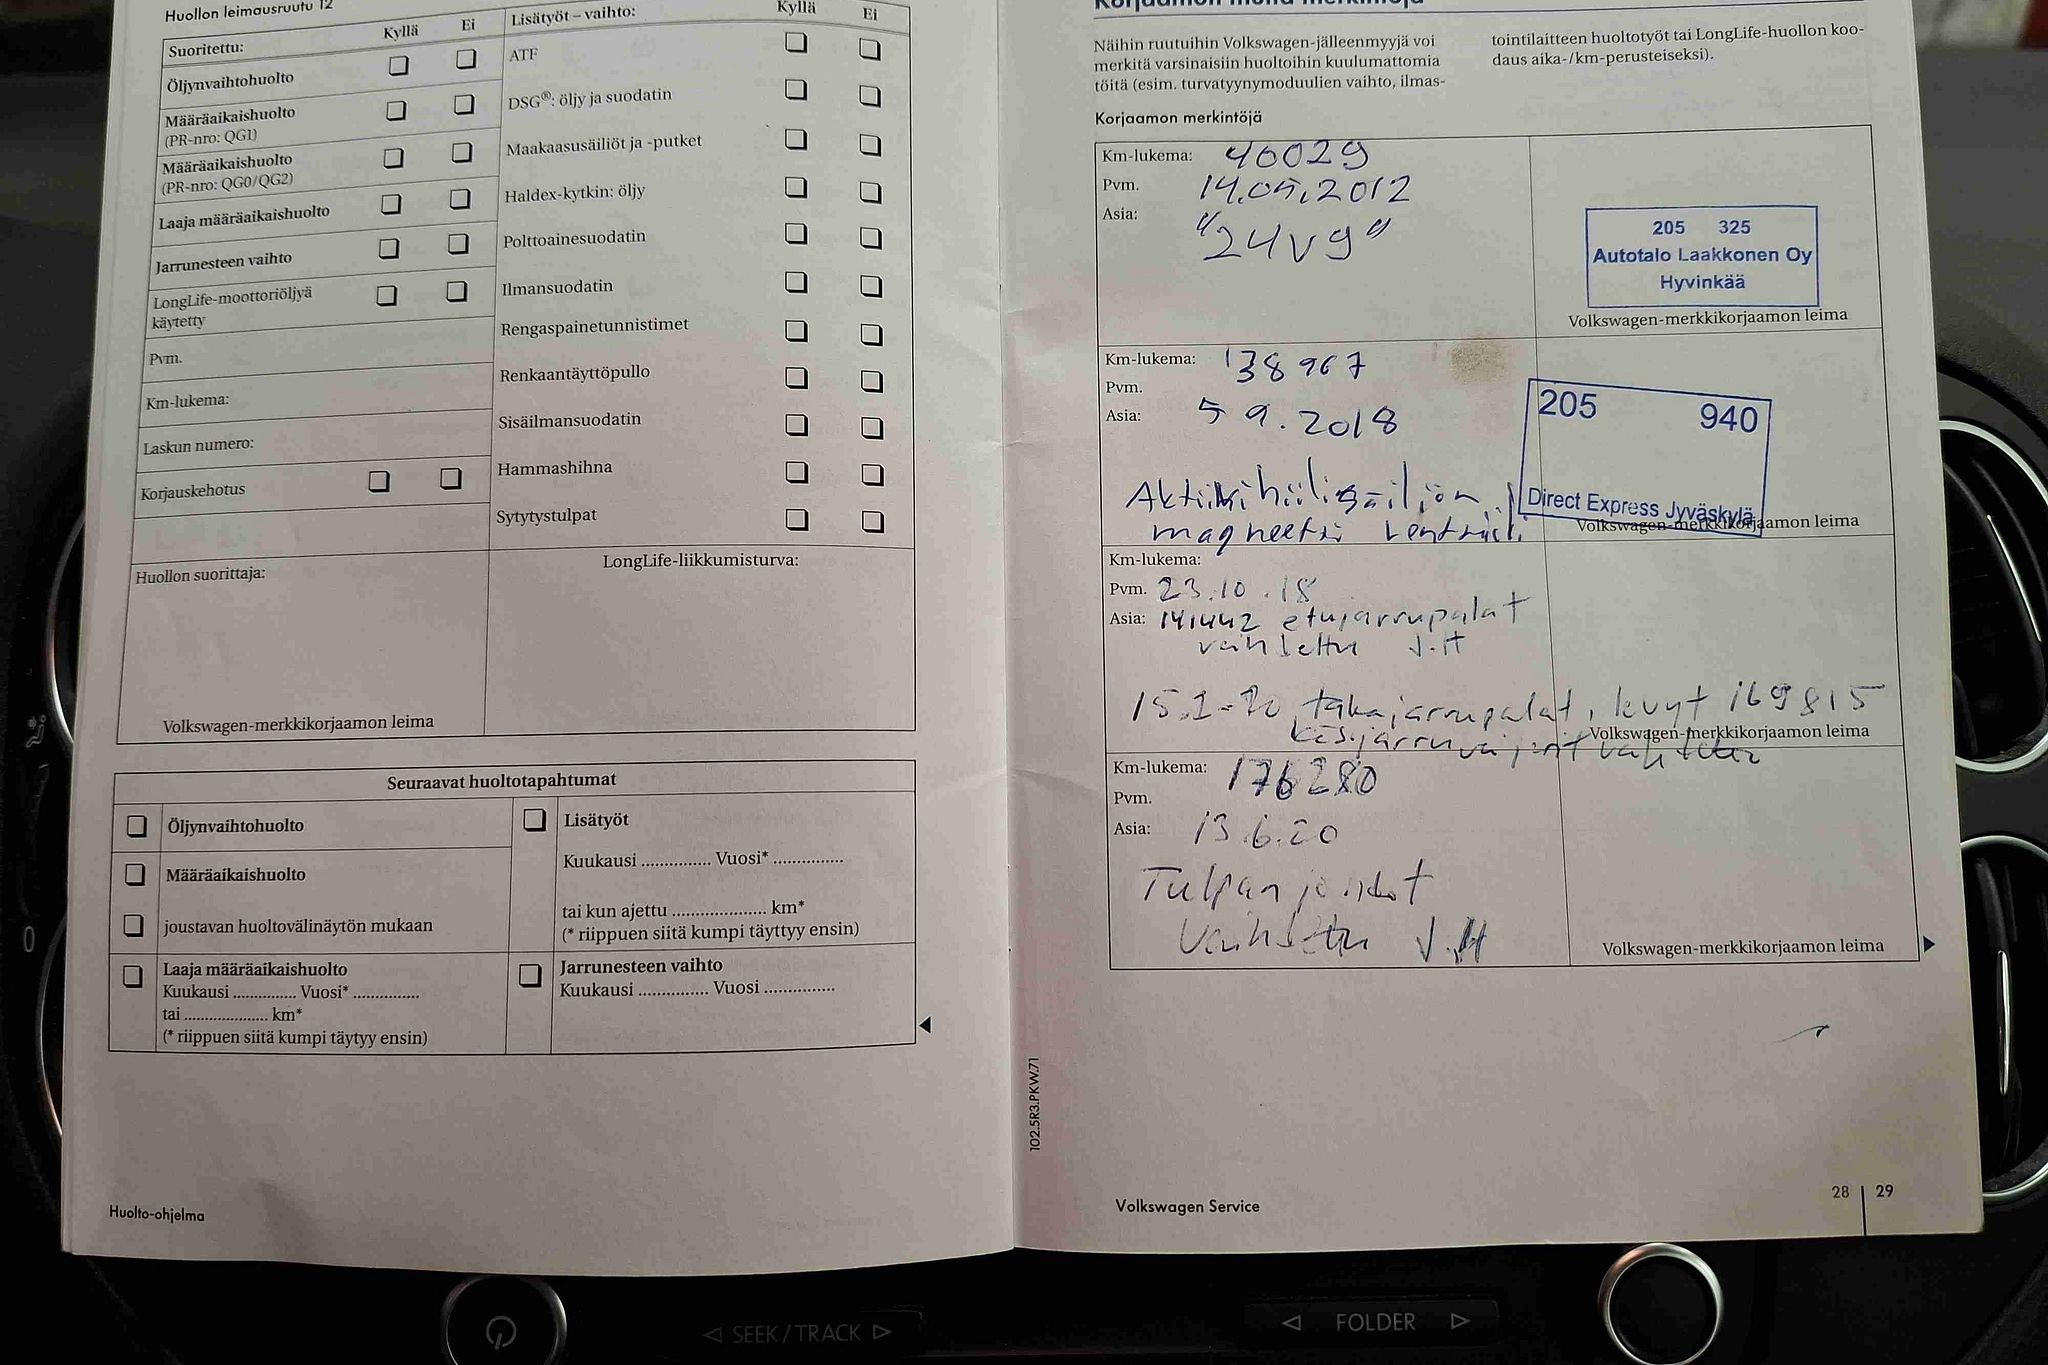 Huollon leimausruutu 12
Suoritettu: Kyllä Ei
Öljynvaihtohuolto
Määräaikaishuolto
(PR-nro: QG1)
Määräaikaishuolto
(PR-nro: QG0/QG2)
Laaja määräaikaishuolto
Jarrunesteen vaihto
LongLife-moottoriöljyä
käytetty
Pvm.
Km-lukema:
Laskun numero:
Korjauskehotus
Huollon suorittaja:
Volkswagen-merkkikorjaamon leima
Lisätyöt – vaihto: Kyllä Ei
ATF
DSG®: öljy ja suodatin
Maakaasusäiliöt ja -putket
Haldex-kytkin: öljy
Polttoainesuodatin
Ilmansuodatin
Rengaspainetunnistimet
Renkaantäyttöpullo
Sisäilmansuodatin
Hammashihna
Sytytystulpat
LongLife-liikkumisturva:
Seuraavat huoltotapahtumat
Öljynvaihtohuolto
Määräaikaishuolto
joustavan huoltovälinäytön mukaan
Laaja määräaikaishuolto
Kuukausi ............... Vuosi* ...............
tai .................... km*
(* riippuen siitä kumpi täytyy ensin)
Lisätyöt
Kuukausi ............... Vuosi* ...............
tai kun ajettu .................... km*
(* riippuen siitä kumpi täyttyy ensin)
Jarrunesteen vaihto
Kuukausi ............... Vuosi ...............
Huolto-ohjelma
Korjaamon muita merkintöjä
Näihin ruutuihin Volkswagen-jälleenmyyjä voi
merkitä varsinaisiin huoltoihin kuulumattomia
töitä (esim. turvatyynymoduulien vaihto, ilmas-
tointilaitteen huoltotyöt tai LongLife-huollon koo-
daus aika-/km-perusteiseksi).
Korjaamon merkintöjä
Km-lukema: 40029
Pvm. 14.05.2012
Asia: "24V9"
205 325
Autotalo Laakkonen Oy
Hyvinkää
Volkswagen-merkkikorjaamon leima
Km-lukema: 138967
Pvm.
Asia: 5 9. 2018
Aktiivihiilisäiliön
magneetti venttiili
205 940
Direct Express Jyväskylä
Volkswagen-merkkikorjaamon leima
Km-lukema:
Pvm. 23.10.18
Asia: 141442 etujarrupalat
vaihdettu J.H
15.1-20 takajarrupalat, levyt 169815
käsijarruvaijerit vaihdettu
Volkswagen-merkkikorjaamon leima
Km-lukema: 176280
Pvm.
Asia: 13.6.20
Tulpanjohdot
vaihdettu J.H
Volkswagen-merkkikorjaamon leima
102.5R3.PKW.71
Volkswagen Service
28 29
0
SEEK / TRACK
FOLDER